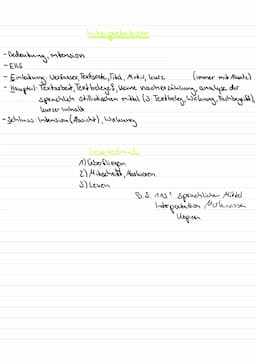 Interpretation
- Bedeutung, Intension
- EHS
- Einleitung: Verfasser, Textsorte, Titel, Motiv, kurz (immer mit Absatz)
- Hauptteil: Textarbeit, Textbelege, keine Nacherzählung, Analyse der
sprachlich stilistischen Mittel (3: Textbeleg, Wirkung, Fachbegriff),
kurzer Inhalt
- Schluss: Intension (Absicht), Wirkung
Lesetechnik
1) Überfliegen
2) Mitschrift, Markieren
3) Lesen
B.S. 113: sprachliche Mittel
Interpretation Merkwissen
kopieren